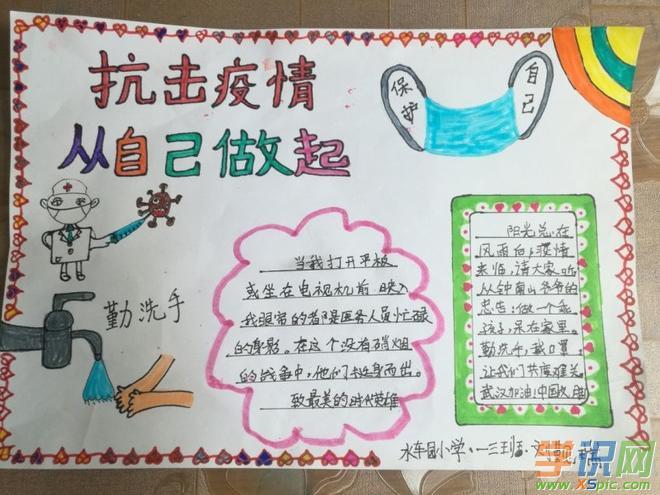 抗击疫情
从自己做起
保护
自己
勤洗手
当我打开平板
或坐在电视机前,映入
我眼帘的都是医务人员忙碌
的身影。在这个没有硝烟
的战争中,他们挺身而出。
致最美的时代英雄
阳光总在
风雨后,疫情
来临,请大家听
从钟南山爷爷的
忠告:做一个乖
孩子,呆在家里。
勤洗手,戴口罩,
让我们共度难关
武汉加油!中国加油
水车园小学·一三班·刘
学识网
XSpic.com